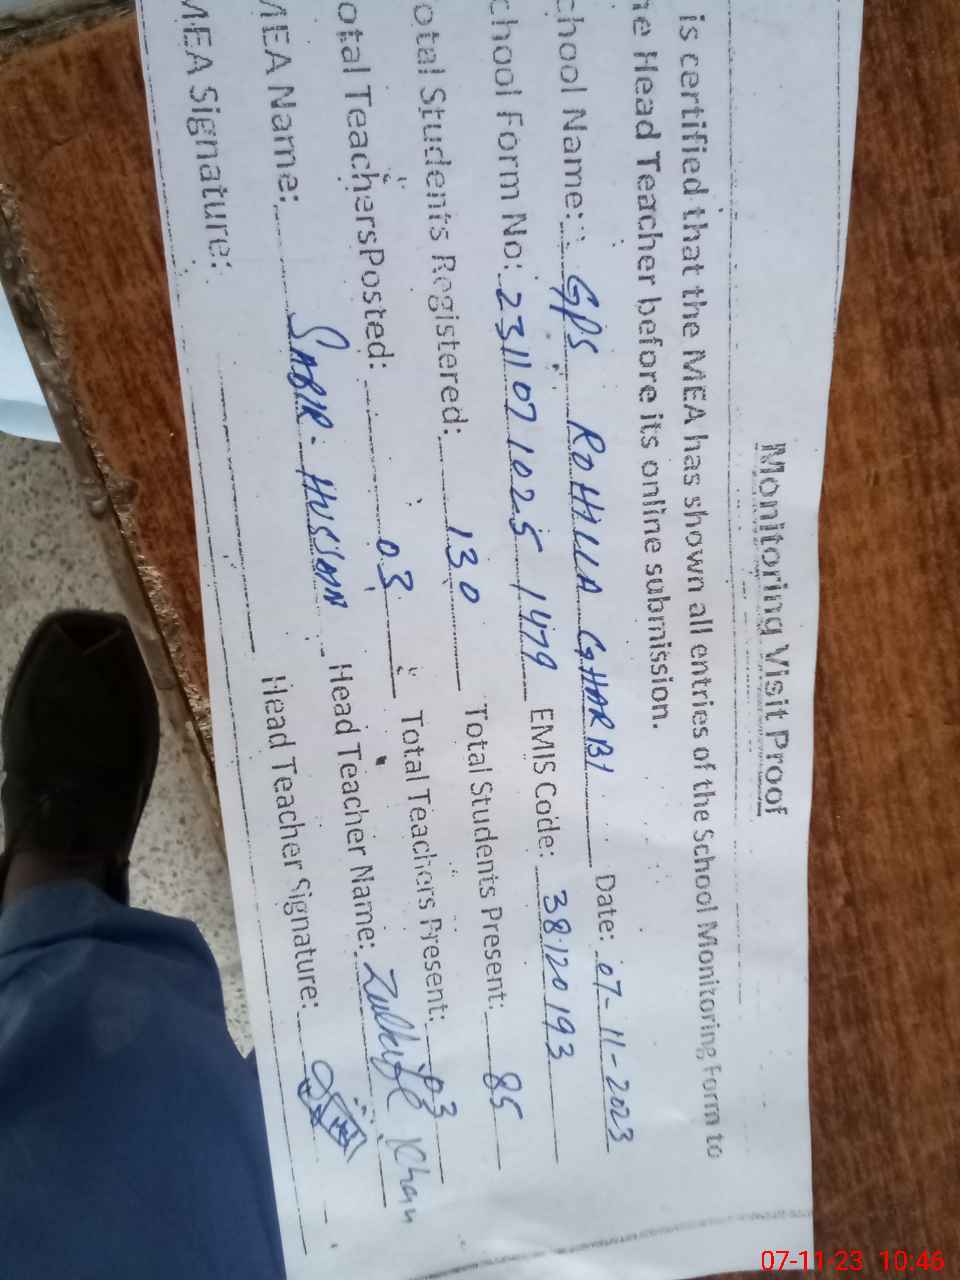 Monitoring Visit Proof
is certified that the MEA has shown all entries of the School Monitoring Form to
he Head Teacher before its online submission.
chool Name: GPS ROHLLA GHARBI Date: 07-11-2023
chool Form No: 231107 1025 1479 EMIS Code: 38120193
otal Students Registered: 130 Total Students Present: 85
otal TeachersPosted: 03 Total Teachers Present: 03
MEA Name: SABIR HUSSAN Head Teacher Name: Khan
MEA Signature: Head Teacher Signature:
07-11-23 10:46